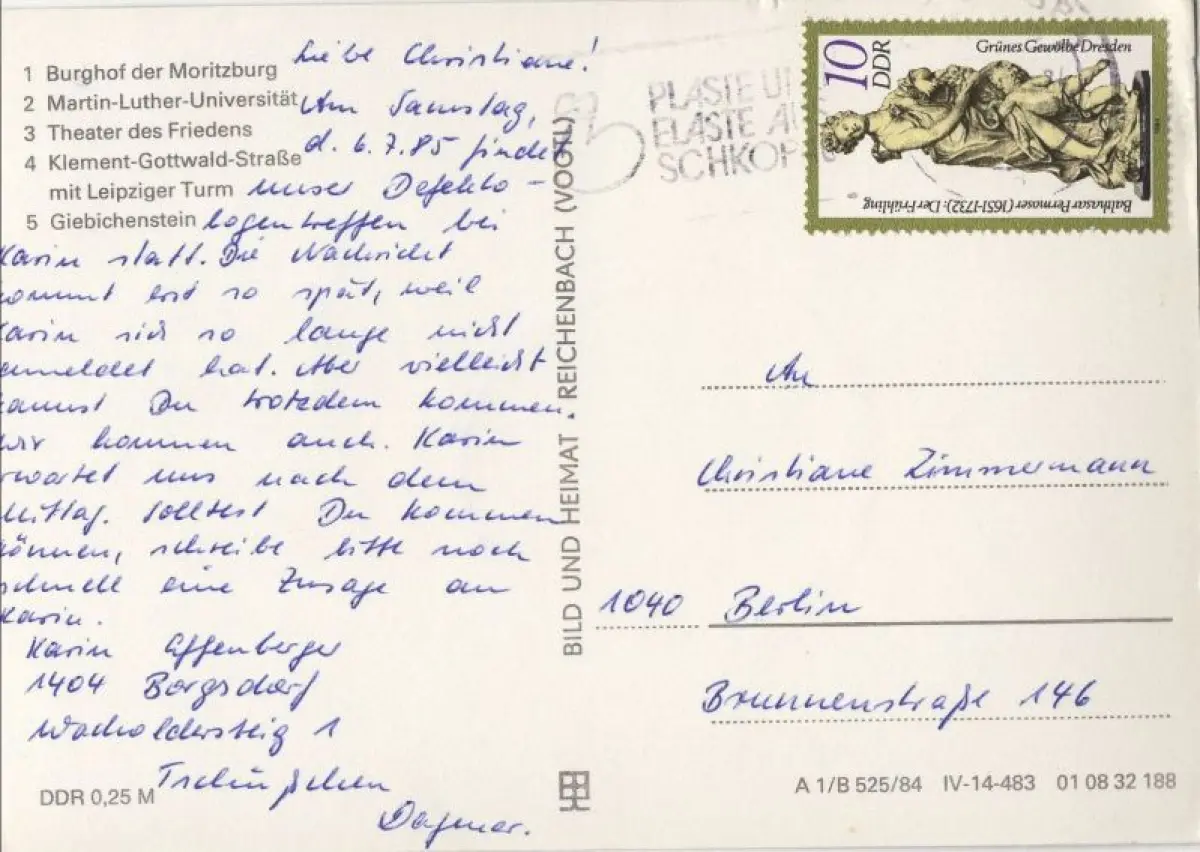 Liebe Christiane!
Am Samstag,
d. 6.7.85 findet
unser Defekto-
logentreffen bei
Karin statt. Die Nachricht
kommt erst so spät, weil
Karin sich so lange nicht
gemeldet hat. Aber vielleicht
kannst Du trotzdem kommen.
Wir kommen auch. Karin
erwartet uns nach dem
Mittag. Solltest Du kommen
können, schreibe bitte noch
schnell eine Zusage an
Karin.
Karin Effenberger
1404 Borgsdorf
Wacholdersteig 1
Tschüßchen
Dagmar.
1 Burghof der Moritzburg
2 Martin-Luther-Universität
3 Theater des Friedens
4 Klement-Gottwald-Straße
mit Leipziger Turm
5 Giebichenstein
DDR 0,25 M
BILD UND HEIMAT · REICHENBACH (VOGTL)
PLASTE U
ELASTE A
SCHKOP
10 DDR
Grünes Gewölbe Dresden
Balthasar Permoser (1651-1732): Der Frühling
An
Christiane Zimmermann
1040 Berlin
Brunnenstraße 146
A 1/B 525/84 IV-14-483 01 08 32 188